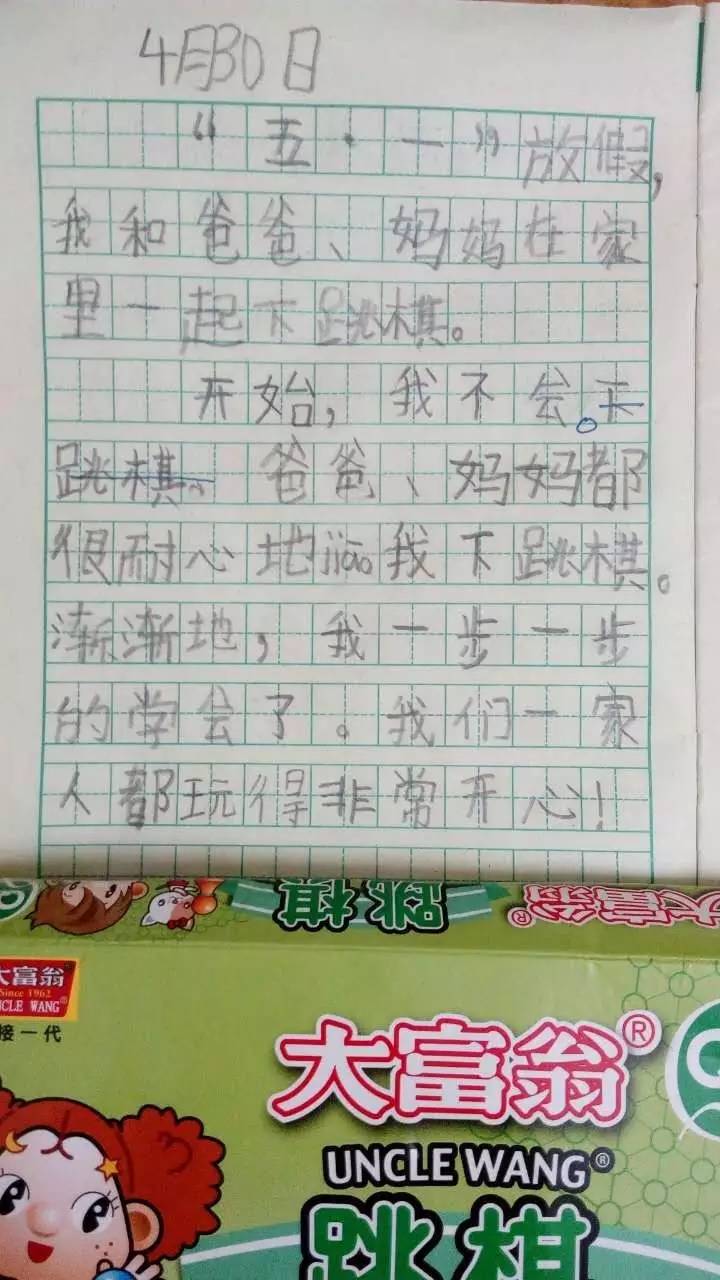 4月30日
“五·一”放假,
我和爸爸、妈妈在家
里一起下跳棋。
开始,我不会。下
跳棋。爸爸、妈妈都
很耐心地jiao我下跳棋。
渐渐地,我一步一步
的学会了。我们一家
人都玩得非常开心!
跳棋
大富翁®
大富翁®
Since 1962
UNCLE WANG®
接一代
大富翁®
UNCLE WANG®
跳棋